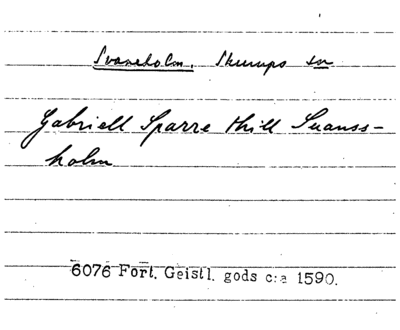 Svaneholm, Skurups sn
Gabriell Sparre thill Suanss-
holm
6076 Fört. Geistl. gods c:a 1590.